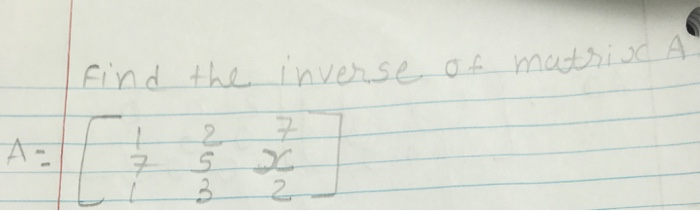 Find the inverse of matrix A
A = [ 1 2 7
7 5 x
1 3 2 ]